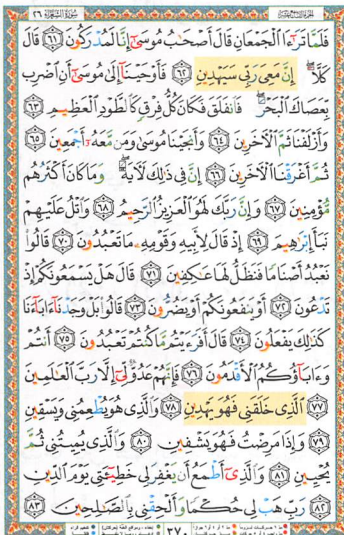 سورة الشعراء ٢٦
فَلَمَّا تَرَٰٓءَا ٱلۡجَمۡعَانِ قَالَ أَصۡحَٰبُ مُوسَىٰٓ إِنَّا لَمُدۡرَكُونَ ٦١ قَالَ
كَلَّآۖ إِنَّ مَعِيَ رَبِّي سَيَهۡدِينِ ٦٢ فَأَوۡحَيۡنَآ إِلَىٰ مُوسَىٰٓ أَنِ ٱضۡرِب
بِّعَصَاكَ ٱلۡبَحۡرَۖ فَٱنفَلَقَ فَكَانَ كُلُّ فِرۡقٖ كَٱلطَّوۡدِ ٱلۡعَظِيمِ ٦٣
وَأَزۡلَفۡنَا ثَمَّ ٱلۡأٓخَرِينَ ٦٤ وَأَنجَيۡنَا مُوسَىٰ وَمَن مَّعَهُۥٓ أَجۡمَعِينَ ٦٥
ثُمَّ أَغۡرَقۡنَا ٱلۡأٓخَرِينَ ٦٦ إِنَّ فِي ذَٰلِكَ لَأٓيَةٗۖ وَمَا كَانَ أَكۡثَرُهُم
مُّؤۡمِنِينَ ٦٧ وَإِنَّ رَبَّكَ لَهُوَ ٱلۡعَزِيزُ ٱلرَّحِيمُ ٦٨ وَٱتۡلُ عَلَيۡهِمۡ
نَبَأَ إِبۡرَٰهِيمَ ٦٩ إِذۡ قَالَ لِأَبِيهِ وَقَوۡمِهِۦ مَا تَعۡبُدُونَ ٧٠ قَالُواْ
نَعۡبُدُ أَصۡنَامٗا فَنَظَلُّ لَهَا عَٰكِفِينَ ٧١ قَالَ هَلۡ يَسۡمَعُونَكُمۡ إِذۡ
تَدۡعُونَ ٧٢ أَوۡ يَنفَعُونَكُمۡ أَوۡ يَضُرُّونَ ٧٣ قَالُواْ بَلۡ وَجَدۡنَآ ءَابَآءَنَا
كَذَٰلِكَ يَفۡعَلُونَ ٧٤ قَالَ أَفَرَءَيۡتُم مَّا كُنتُمۡ تَعۡبُدُونَ ٧٥ أَنتُمۡ
وَءَابَآؤُكُمُ ٱلۡأَقۡدَمُونَ ٧٦ فَإِنَّهُمۡ عَدُوّٞ لِّيٓ إِلَّا رَبَّ ٱلۡعَٰلَمِينَ
٧٧ ٱلَّذِي خَلَقَنِي فَهُوَ يَهۡدِينِ ٧٨ وَٱلَّذِي هُوَ يُطۡعِمُنِي وَيَسۡقِينِ
٧٩ وَإِذَا مَرِضۡتُ فَهُوَ يَشۡفِينِ ٨٠ وَٱلَّذِي يُمِيتُنِي ثُمَّ
يُحۡيِينِ ٨١ وَٱلَّذِيٓ أَطۡمَعُ أَن يَغۡفِرَ لِي خَطِيٓـَٔتِي يَوۡمَ ٱلدِّينِ
٨٢ رَبِّ هَبۡ لِي حُكۡمٗا وَأَلۡحِقۡنِي بِٱلصَّٰلِحِينَ ٨٣
٣٧٠